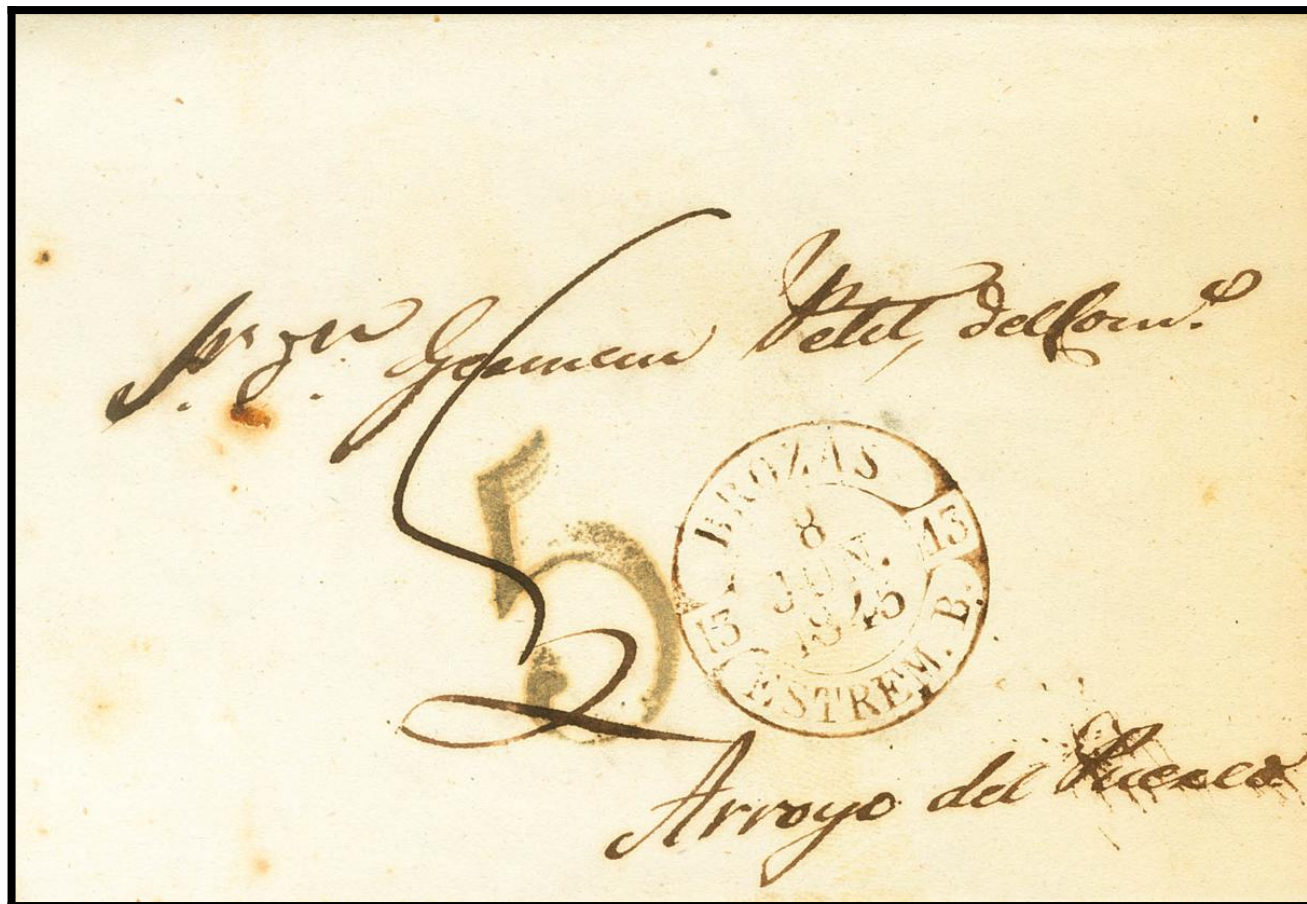 German Petit, del Com.º
5
BROZAS
15
8
JUN.
1845
15
ESTREM. B.
Arroyo del Puerco